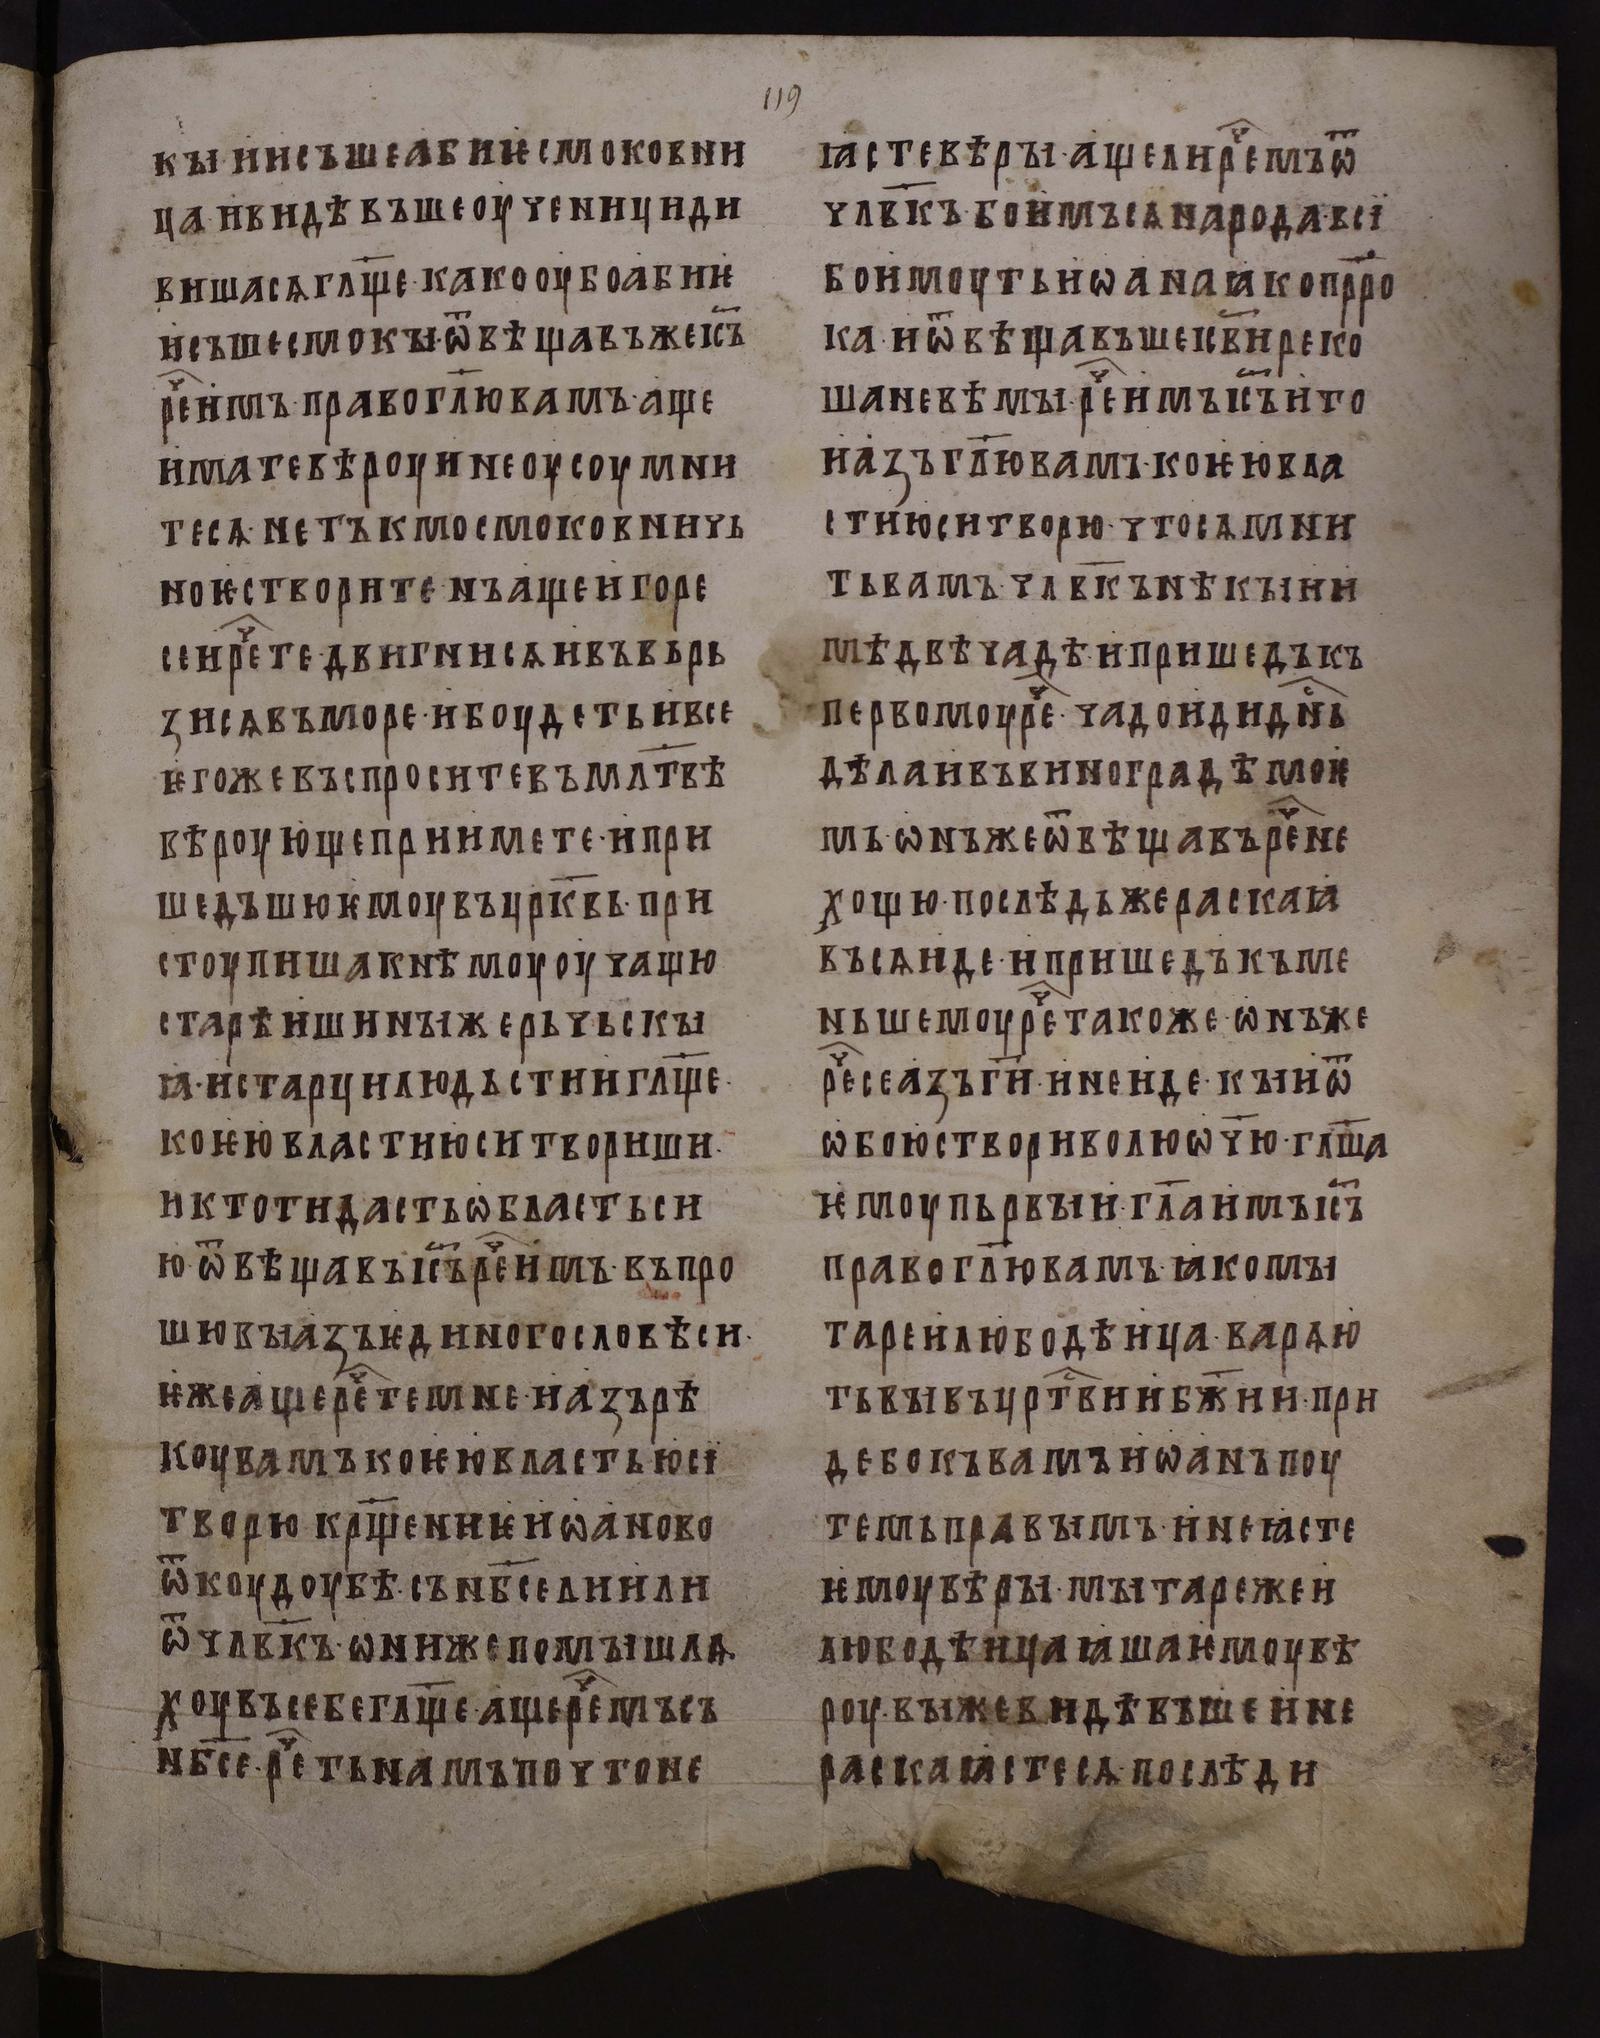 119
кꙑ и исъше абиѥ смоковни
ца· и видѣвъше оученици ди
вишасѧ гл҃ще· како оубо абиѥ
исъше смокꙑ· ѿвѣщавъ же іс҃ъ
реⷱ҇ имъ· право гл҃ю вамъ· аще
имате вѣроу и не оусоумни
тесѧ· не тъкмо смоковничь
ноѥ створите· нъ аще и горе
сеи реⷱ҇те· двигнисѧ и въвьрь
зисѧ въ море· и боудеть· и все
ѥгоже въспросите въ млт҃вѣ
вѣроующе приимете· и при
шедъшю ѥмоу въ црк҃вь· при
стоупиша к нѣмоу оучащю
старѣишинꙑ жерьчьскꙑ
ꙗ· и старци людьстии гл҃ще·
коѥю властию си твориши·
и кто ти дасть ѡбласть си
ю· ѿвѣщавъ іс҃ъ реⷱ҇ имъ· въпро
шю вꙑ азъ ѥдиного словѣси·
ѥже аще реⷱ҇те мне· и азъ рѣ
коу вамъ коѥю властью сї
творю· крщ҃ениѥ иѡаново
ѿкоудоу бѣ· съ нб҃се ли или
ѿ члв҃къ· ѡни же помꙑшлѧ
хоу въ себе гл҃ще· аще реⷱ҇мъ съ
нб҃се· реⷱ҇ть намъ почто не
ꙗсте вѣрꙑ· аще ли реⷱ҇мъ ѿ
члв҃къ· боимъсѧ народа· всї
бо имоуть иѡана ꙗко прⷪ҇ро
ка· и ѿвѣщавъше ісв҃и реко
ша не вѣмꙑ· реⷱ҇ имъ іс҃ъ и то
и азъ гл҃ю вамъ· коѥю вла
стию си творю· что сѧ мни
ть вамъ· члв҃къ нѣкꙑи и
мѣ двѣ чадѣ· и пришедъ къ
первомоу реⷱ҇· чадо иди днⷭ҇ь
дѣлаи въ винограѣ моѥ
мь· ѡнъ же ѿвѣщавъ реⷱ҇ не
хощю· послѣдь же раскаꙗ
въсѧ иде· и пришедъ къ ме
ньшемоу реⷱ҇ такоже· ѡнъ же
реⷱ҇ се азъ г҃и· и не иде· кꙑи ѿ
ѡбою створи волю ѡч҃ю· гл҃ша
ѥмоу пьрвꙑи· гл҃а имъ іс҃ъ
право гл҃ю вамъ· ꙗко мꙑ
таре и любодѣица· варѧю
ть вꙑ въ црⷭ҇твии бж҃ии· при
де бо къ вамъ иѡанъ поу
темь правꙑмъ· и не ꙗсте
ѥмоу вѣрꙑ· мꙑтареже и
любодѣица ꙗша ѥмоу вѣ
роу· вꙑ же видѣвъше и не
раскаꙗстесѧ послѣди